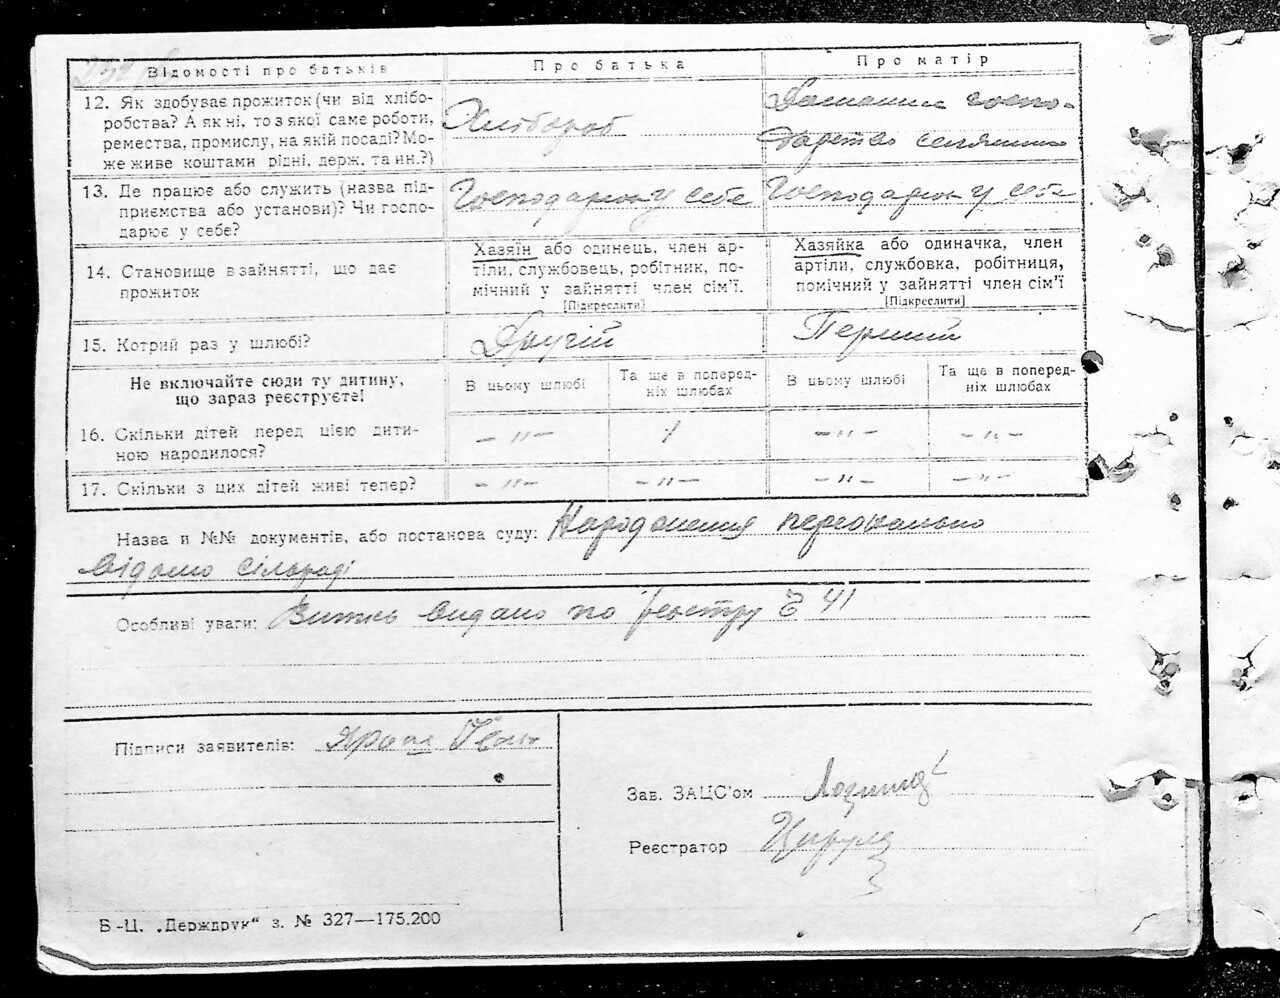 Відомості про батьків Про батька Про матір
12. Як здобуває прожиток (чи від хлібо-
робства? А як ні, то з якої саме роботи,
ремества, промислу, на якій посаді? Мо-
же живе коштами рідні, держ. та ин.?)
Хлібороб
Домашнє госпо-
дарство селянина
13. Де працює або служить (назва під-
приємства або установи)? Чи госпо-
дарює у себе?
Господарює у себе
Господарює у себе
14. Становище в зайнятті, що дає
прожиток
Хазяїн або одинець, член ар-
тіли, службовець, робітник, по-
мічний у зайнятті член сім'ї.
[Підкреслити]
Хазяйка або одиначка, член
артіли, службовка, робітниця,
помічний у зайнятті член сім'ї
[Підкреслити]
15. Котрий раз у шлюбі?
Другій
Перший
Не включайте сюди ту дитину,
що зараз реєструєте!
В цьому шлюбі
Та ще в поперед-
ніх шлюбах
В цьому шлюбі
Та ще в поперед-
ніх шлюбах
16. Скільки дітей перед цією дити-
ною народилося?
– " – 1 – " – – " –
17. Скільки з цих дітей живі тепер?
– " – – " – – " – – " –
Назва й №№ документів, або постанова суду: Народження персонально
відомо сільраді
Особливі уваги: Витяг видано по реєстру № 41
Підписи заявителів:
Зав. ЗАЦС'ом
Реєстратор Цируля
Б-Ц. „Держдрук" з. № 327—175.200